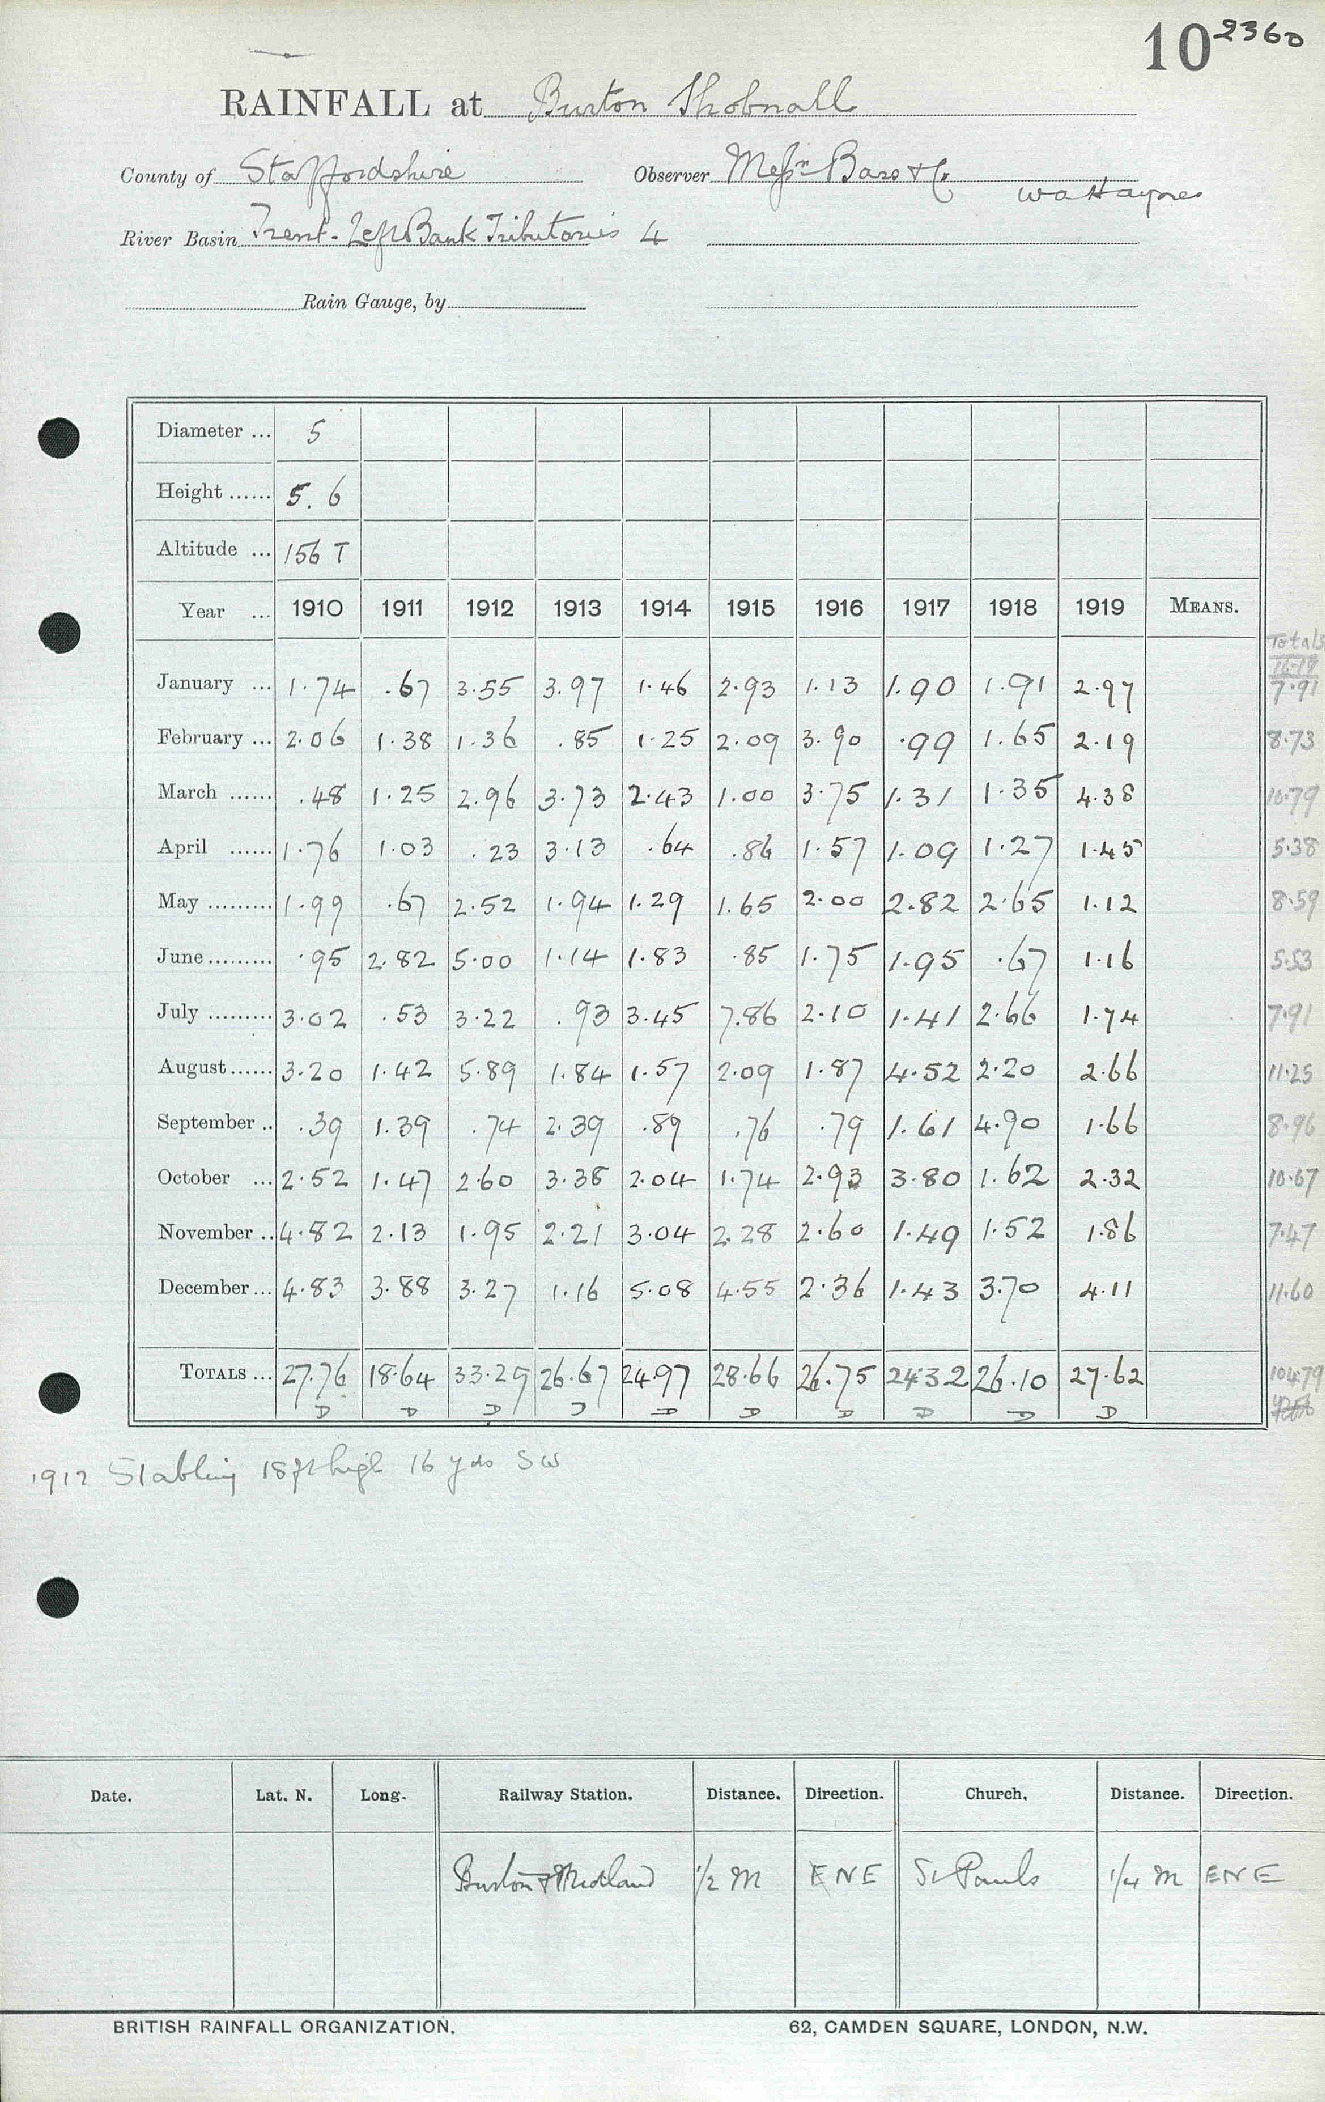 10 2360
RAINFALL at Burton Shobnall
County of Staffordshire Observer Messrs Bass & Co W A Haynes
River Basin Trent - Left Bank Tributaries 4
Rain Gauge, by
Diameter ... 5
Height ...... 5. 6
Altitude ... 156 T
Year ... 1910 1911 1912 1913 1914 1915 1916 1917 1918 1919 MEANS.
Totals
16-19
January ... 1.74 .67 3.55 3.97 1.46 2.93 1.13 1.90 1.91 2.97 7.91
February ... 2.06 1.38 1.36 .85 1.25 2.09 3.90 .99 1.65 2.19 8.73
March ...... .48 1.25 2.96 3.73 2.43 1.00 3.75 1.31 1.35 4.38 10.79
April ...... 1.76 1.03 .23 3.13 .64 .86 1.57 1.09 1.27 1.45 5.38
May ......... 1.99 .67 2.52 1.94 1.29 1.65 2.00 2.82 2.65 1.12 8.59
June ......... .95 2.82 5.00 1.14 1.83 .85 1.75 1.95 .67 1.16 5.53
July ......... 3.02 .53 3.22 .93 3.45 7.86 2.10 1.41 2.66 1.74 7.91
August ...... 3.20 1.42 5.89 1.84 1.57 2.09 1.87 4.52 2.20 2.66 11.25
September .. .39 1.39 .74 2.39 .89 .76 .79 1.61 4.90 1.66 8.96
October ... 2.52 1.47 2.60 3.38 2.04 1.74 2.93 3.80 1.62 2.32 10.67
November .. 4.82 2.13 1.95 2.21 3.04 2.28 2.60 1.49 1.52 1.86 7.47
December ... 4.83 3.88 3.27 1.16 5.08 4.55 2.36 1.43 3.70 4.11 11.60
TOTALS ... 27.76 18.64 33.29 26.67 24.97 28.66 26.75 24.32 26.10 27.62 104.79
D D D D D D D D D D
1912 Stabling 18ft high 16 yds SW
Date. Lat. N. Long. Railway Station. Distance. Direction. Church. Distance. Direction.
Burton Midland 1/2 M ENE St Pauls 1/4 M ENE
BRITISH RAINFALL ORGANIZATION. 62, CAMDEN SQUARE, LONDON, N.W.